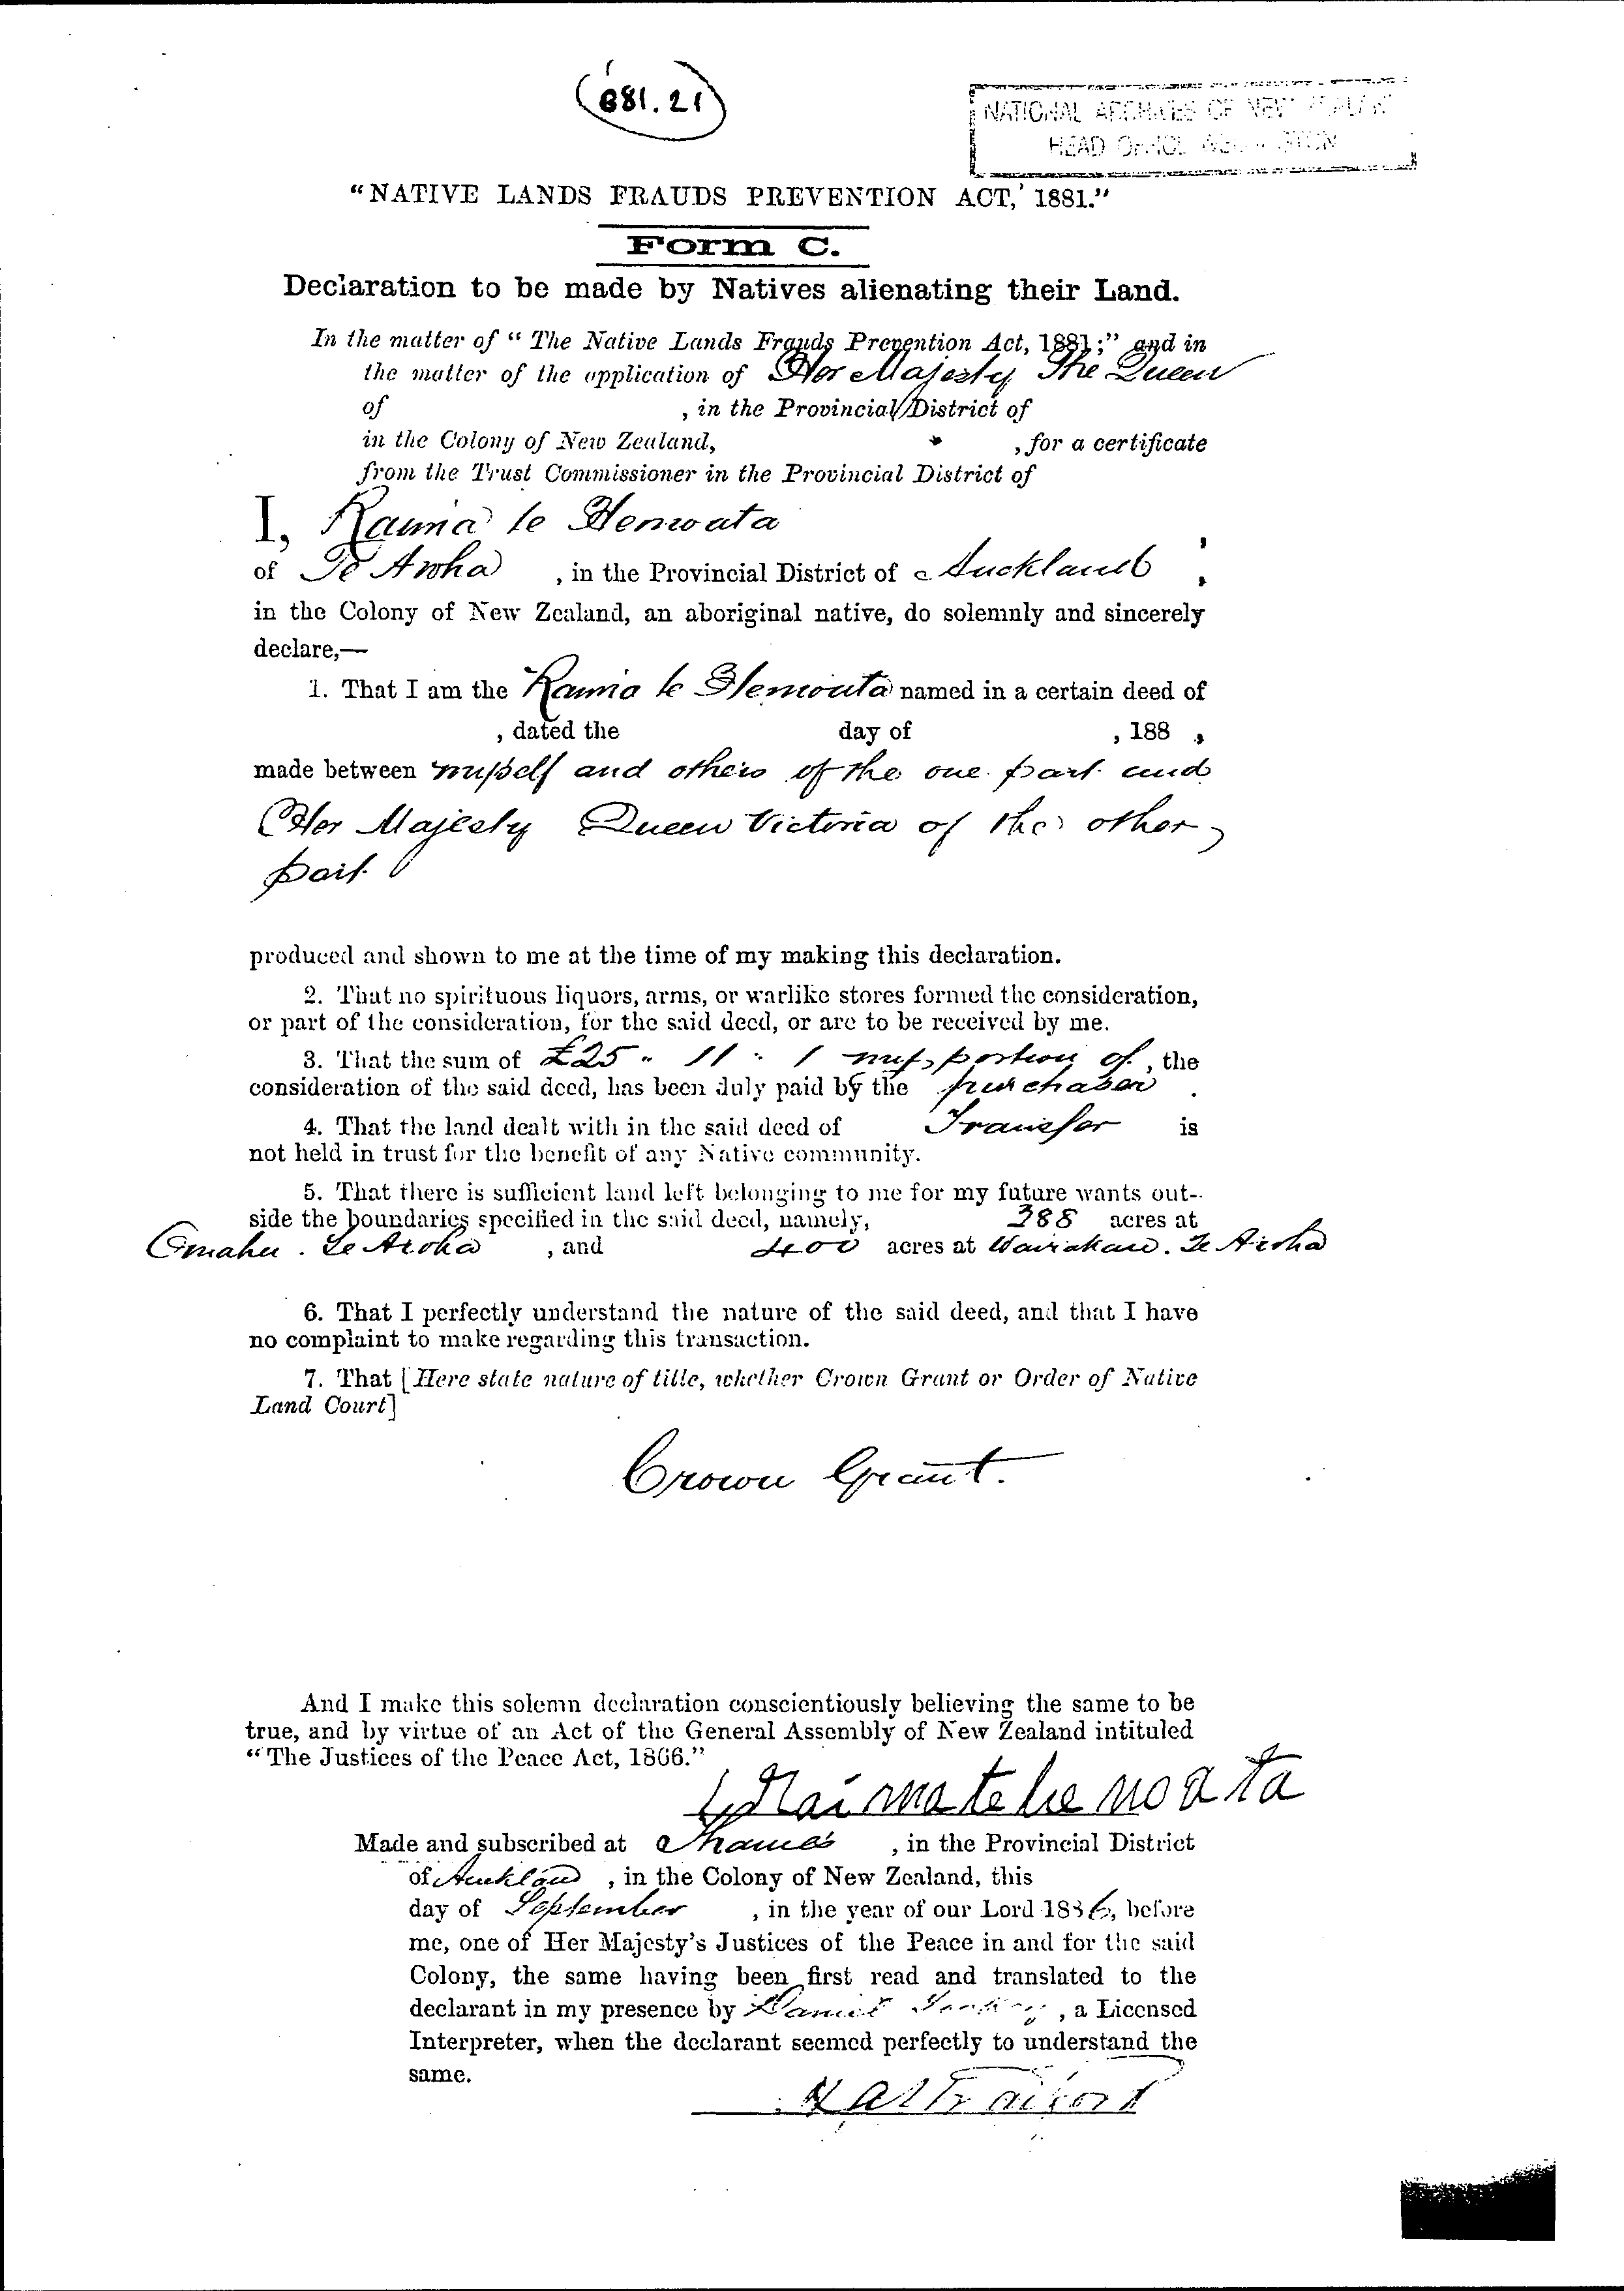 681.21
NATIONAL ARCHIVES OF NEW ZEALAND
HEAD OFFICE WELLINGTON
"NATIVE LANDS FRAUDS PREVENTION ACT, 1881."
Form C.
Declaration to be made by Natives alienating their Land.
In the matter of "The Native Lands Frauds Prevention Act, 1881;" and in
the matter of the application of Her Majesty The Queen
of , in the Provincial District of
in the Colony of New Zealand, , for a certificate
from the Trust Commissioner in the Provincial District of
I, Raima te Henoata
of Te Aroha , in the Provincial District of Auckland ,
in the Colony of New Zealand, an aboriginal native, do solemnly and sincerely
declare,—
1. That I am the Raima te Henouta named in a certain deed of
, dated the day of , 188 ,
made between myself and others of the one part and
Her Majesty Queen Victoria of the other
part
produced and shown to me at the time of my making this declaration.
2. That no spirituous liquors, arms, or warlike stores formed the consideration,
or part of the consideration, for the said deed, or are to be received by me.
3. That the sum of £25 " 11 : 1 my portion of , the
consideration of the said deed, has been duly paid by the purchaser .
4. That the land dealt with in the said deed of Transfer is
not held in trust for the benefit of any Native community.
5. That there is sufficient land left belonging to me for my future wants out-
side the boundaries specified in the said deed, namely, 388 acres at
Omahu . Te Aroha , and 400 acres at Wairakau . Te Aroha
6. That I perfectly understand the nature of the said deed, and that I have
no complaint to make regarding this transaction.
7. That [Here state nature of title, whether Crown Grant or Order of Native
Land Court]
Crown Grant.
And I make this solemn declaration conscientiously believing the same to be
true, and by virtue of an Act of the General Assembly of New Zealand intituled
"The Justices of the Peace Act, 1866."
Raima te he no ata
Made and subscribed at Thames , in the Provincial District
of Auckland , in the Colony of New Zealand, this
day of September , in the year of our Lord 1886, before
me, one of Her Majesty's Justices of the Peace in and for the said
Colony, the same having been first read and translated to the
declarant in my presence by , a Licensed
Interpreter, when the declarant seemed perfectly to understand the
same.